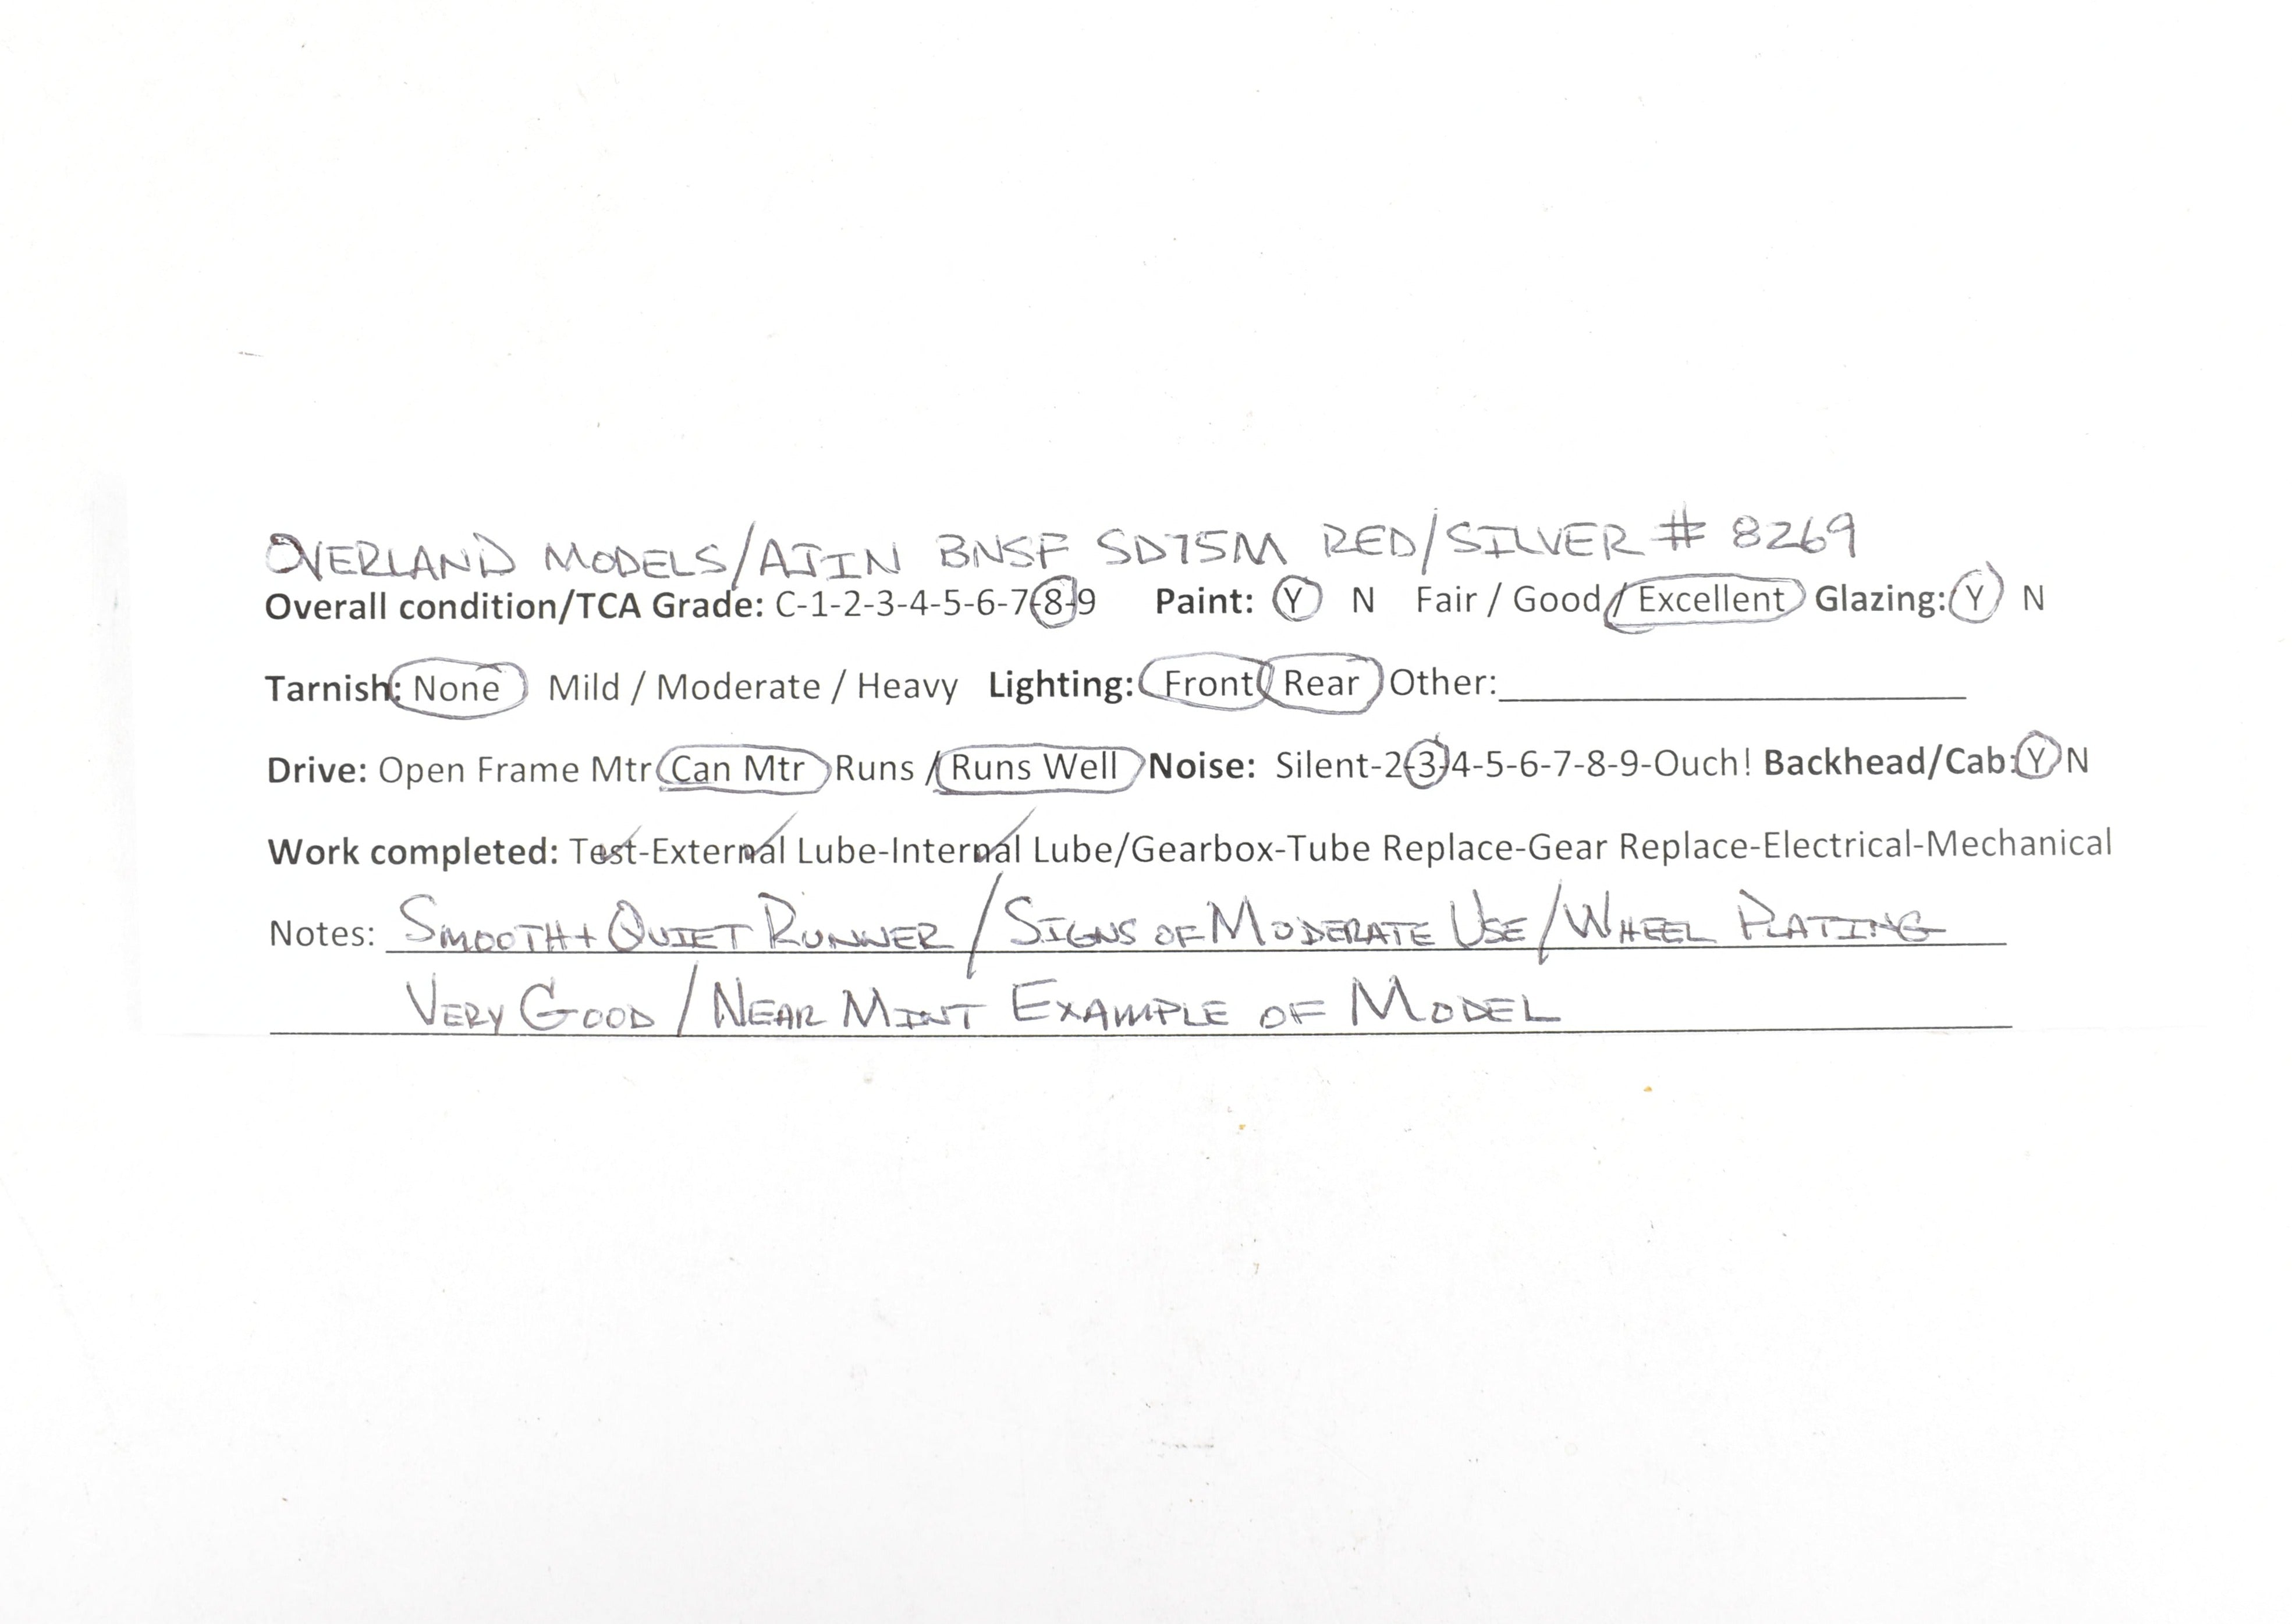 OVERLAND MODELS/AJIN BNSF SD75M RED/SILVER # 8269
Overall condition/TCA Grade: C-1-2-3-4-5-6-7-8-9 Paint: Y N Fair / Good / Excellent Glazing: Y N
Tarnish: None Mild / Moderate / Heavy Lighting: Front Rear Other:
Drive: Open Frame Mtr Can Mtr Runs / Runs Well Noise: Silent-2-3-4-5-6-7-8-9-Ouch! Backhead/Cab: Y N
Work completed: Test-External Lube-Internal Lube/Gearbox-Tube Replace-Gear Replace-Electrical-Mechanical
Notes: SMOOTH + QUIET RUNNER / SIGNS OF MODERATE USE / WHEEL PLATING
VERY GOOD / NEAR MINT EXAMPLE OF MODEL